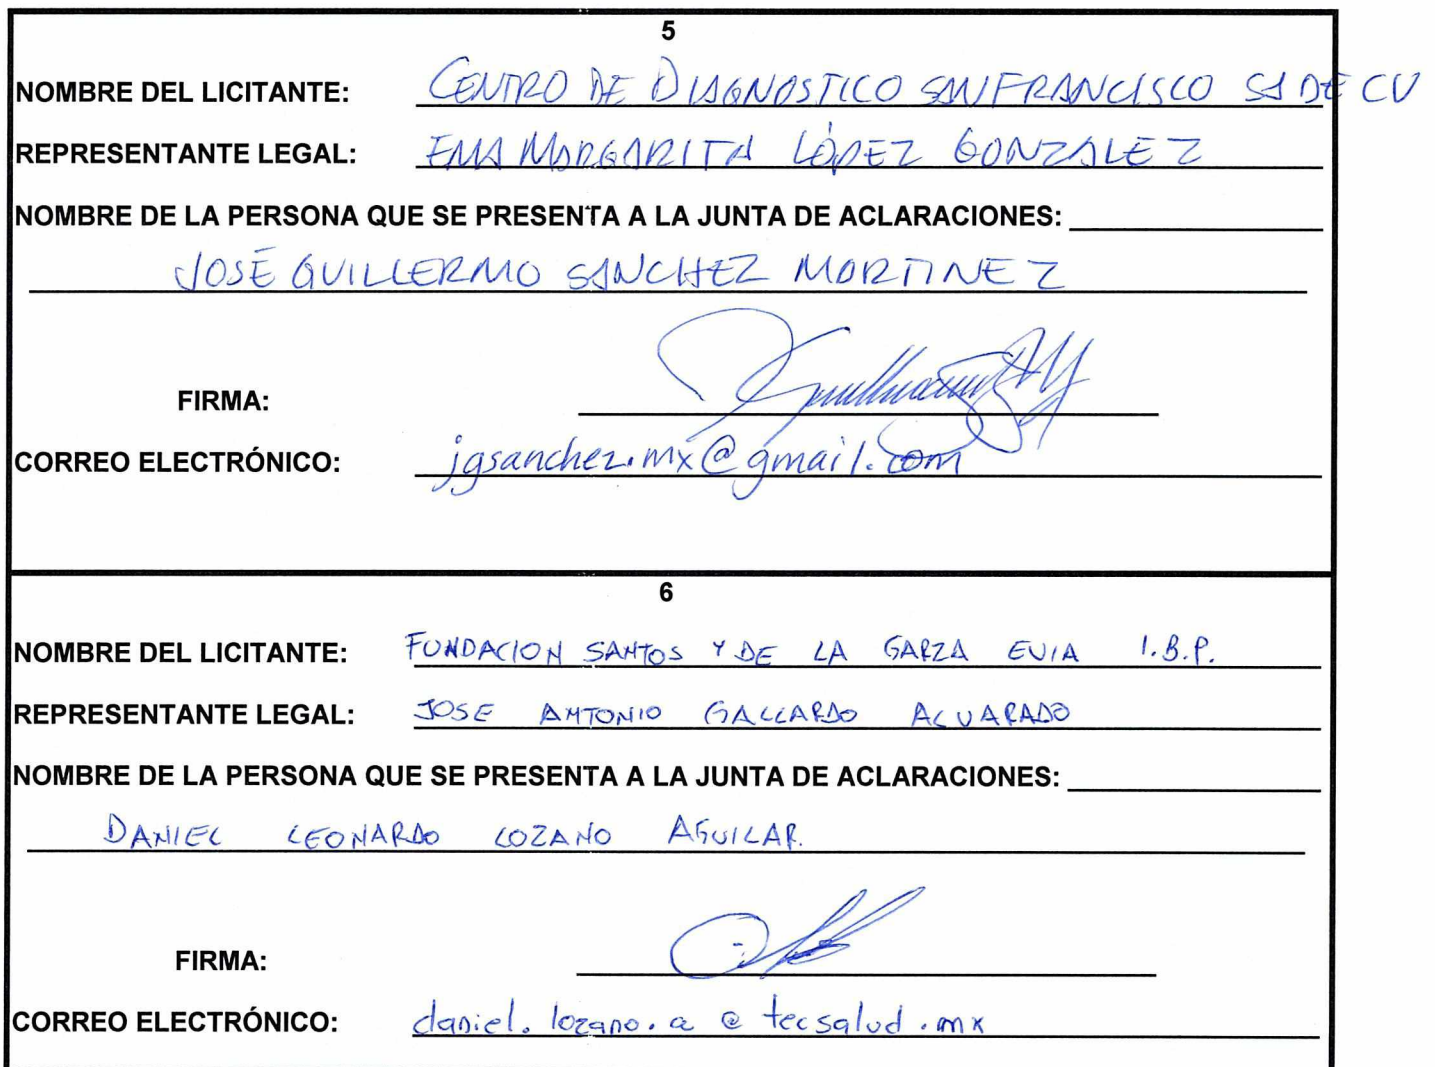 5
NOMBRE DEL LICITANTE: CENTRO DE DIAGNOSTICO SAN FRANCISCO SA DE CV
REPRESENTANTE LEGAL: EMA MARGARITA LÓPEZ GONZALEZ
NOMBRE DE LA PERSONA QUE SE PRESENTA A LA JUNTA DE ACLARACIONES:
JOSÉ GUILLERMO SANCHEZ MARTINEZ
FIRMA:
CORREO ELECTRÓNICO: jgsanchez.mx@gmail.com
6
NOMBRE DEL LICITANTE: FUNDACION SANTOS Y DE LA GARZA EVIA I.B.P.
REPRESENTANTE LEGAL: JOSE ANTONIO GALLARDO ALVARADO
NOMBRE DE LA PERSONA QUE SE PRESENTA A LA JUNTA DE ACLARACIONES:
DANIEL LEONARDO LOZANO AGUILAR.
FIRMA:
CORREO ELECTRÓNICO: daniel.lozano.a@tecsalud.mx